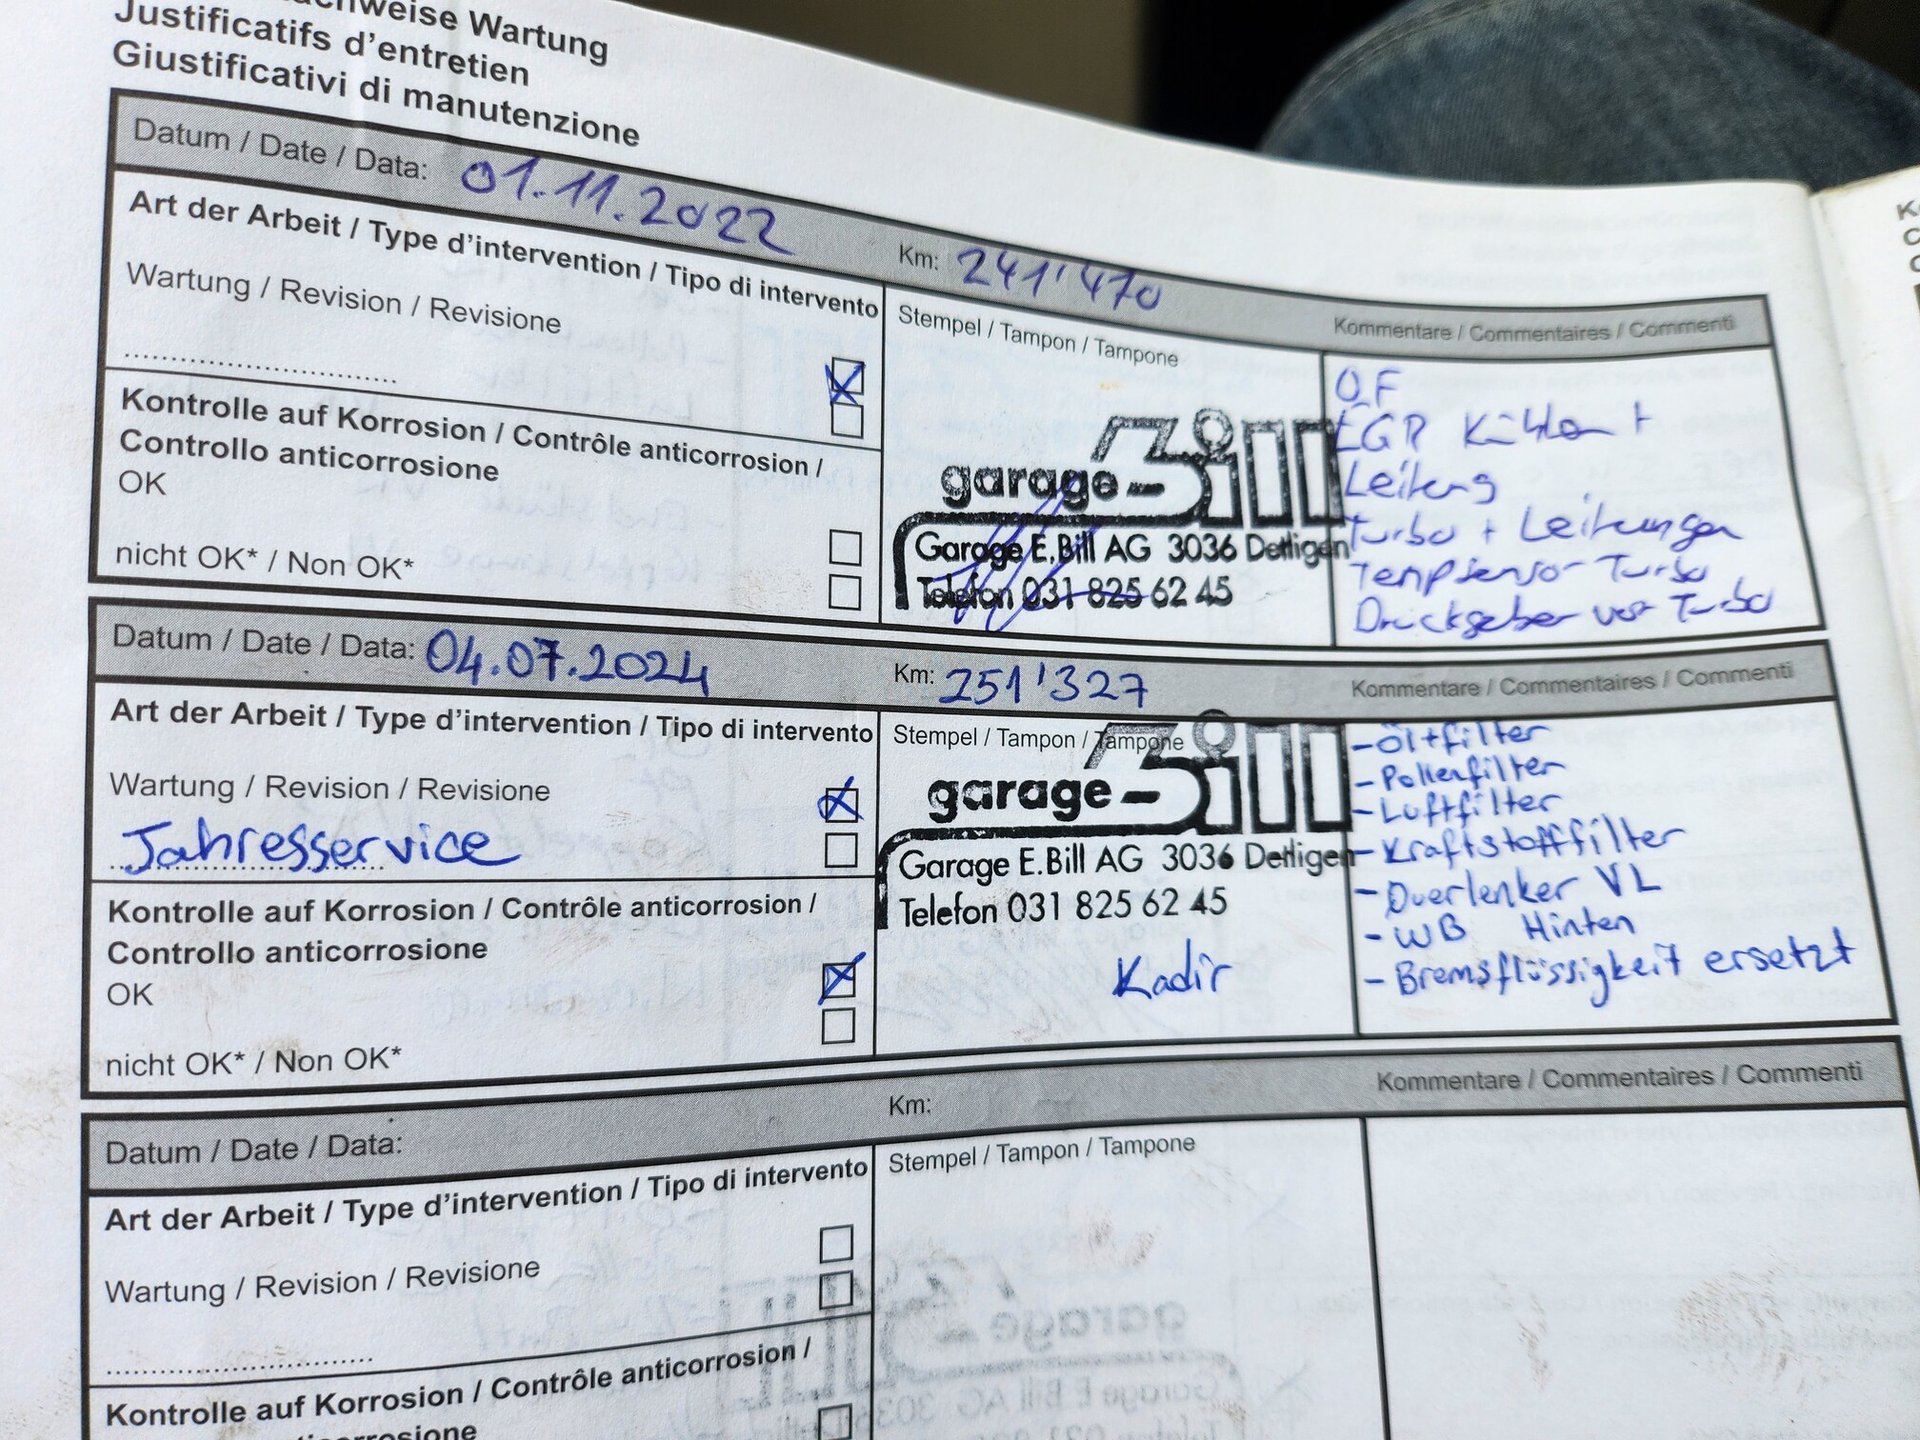 Wartung
Justificatifs d'entretien
Giustificativi di manutenzione
Datum / Date / Data: 01.11.2022
Km: 241'470
Kommentare / Commentaires / Commenti
Art der Arbeit / Type d'intervention / Tipo di intervento
Wartung / Revision / Revisione
Kontrolle auf Korrosion / Contrôle anticorrosion /
Controllo anticorrosione
OK
nicht OK* / Non OK*
Stempel / Tampon / Tampone
garage Bill
Garage E.Bill AG 3036 Dettigen
Telefon 031 825 62 45
EGR
Leitung
Turbo + Leitungen
Tempsensor Turbo
Druckgeber vor Turbo
Datum / Date / Data: 04.07.2024
Km: 251'327
Kommentare / Commentaires / Commenti
Art der Arbeit / Type d'intervention / Tipo di intervento
Wartung / Revision / Revisione
Jahresservice
Kontrolle auf Korrosion / Contrôle anticorrosion /
Controllo anticorrosione
OK
nicht OK* / Non OK*
Stempel / Tampon / Tampone
garage Bill
Garage E.Bill AG 3036 Dettigen
Telefon 031 825 62 45
Kadir
- Öl+filter
- Pollenfilter
- Luftfilter
- Kraftstofffilter
- Querlenker VL
- WB Hinten
- Bremsflüssigkeit ersetzt
Datum / Date / Data:
Km:
Kommentare / Commentaires / Commenti
Art der Arbeit / Type d'intervention / Tipo di intervento
Wartung / Revision / Revisione
Kontrolle auf Korrosion / Contrôle anticorrosion /
Stempel / Tampon / Tampone